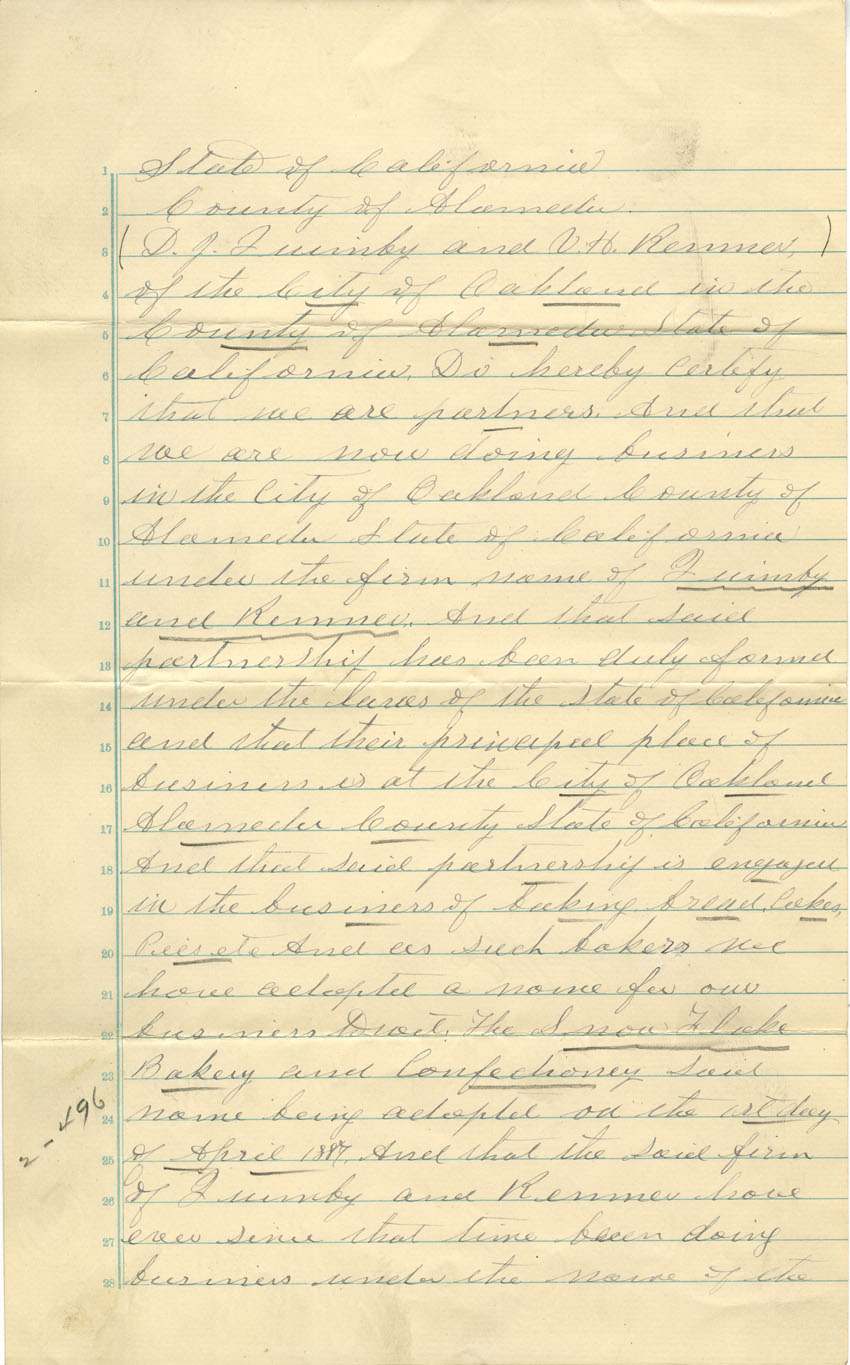 1 State of California
2 County of Alameda.
3 (D. J. Quimby and V. H. Remmer, )
4 of the City of Oakland in the
5 County of Alameda State of
6 California, Do hereby Certify
7 that we are partners, And that
8 we are now doing business
9 in the City of Oakland County of
10 Alameda State of California
11 under the firm name of Quimby
12 and Remmer, And that said
13 partnership has been duly formed
14 under the laws of the State of California
15 and that their principal place of
16 business is at the City of Oakland
17 Alameda County State of California
18 And that said partnership is engaged
19 in the business of baking bread, Cakes,
20 Pies etc And as such bakers we
21 have adopted a name for our
22 business Towit, The Snow Flake
23 Bakery and Confectioney said
24 name being adopted on the 1st day
25 of April 1887, And that the said firm
26 of Quimby and Remmer have
27 ever since that time been doing
28 business under the name of the
2-496